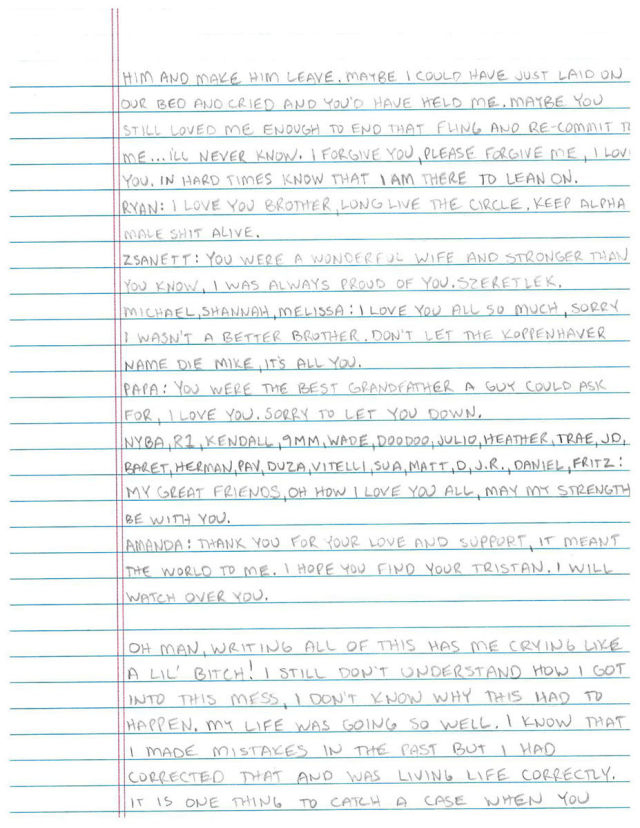 HIM AND MAKE HIM LEAVE. MAYBE I COULD HAVE JUST LAID ON
OUR BED AND CRIED AND YOU'D HAVE HELD ME. MAYBE YOU
STILL LOVED ME ENOUGH TO END THAT FLING AND RE-COMMIT T
ME... ILL NEVER KNOW. I FORGIVE YOU, PLEASE FORGIVE ME, I LOV
YOU. IN HARD TIMES KNOW THAT I AM THERE TO LEAN ON.
RYAN: I LOVE YOU BROTHER, LONG LIVE THE CIRCLE. KEEP ALPHA
MALE SHIT ALIVE.
ZSANETT: YOU WERE A WONDERFUL WIFE AND STRONGER THAN
YOU KNOW, I WAS ALWAYS PROUD OF YOU. SZERETLEK.
MICHAEL, SHANNAH, MELISSA: I LOVE YOU ALL SO MUCH, SORRY
I WASN'T A BETTER BROTHER. DON'T LET THE KOPPENHAVER
NAME DIE MIKE, IT'S ALL YOU.
PAPA: YOU WERE THE BEST GRANDFATHER A GUY COULD ASK
FOR, I LOVE YOU. SORRY TO LET YOU DOWN.
NYBA, R1, KENDALL, 9MM, WADE, DOODOO, JULIO, HEATHER, TRAE, JD,
BARET, HERMAN, PAV, DUZA, VITELLI, SUA, MATT, D, J.R., DANIEL, FRITZ:
MY GREAT FRIENDS, OH HOW I LOVE YOU ALL, MAY MY STRENGTH
BE WITH YOU.
AMANDA: THANK YOU FOR YOUR LOVE AND SUPPORT, IT MEANT
THE WORLD TO ME. I HOPE YOU FIND YOUR TRISTAN. I WILL
WATCH OVER YOU.
OH MAN, WRITING ALL OF THIS HAS ME CRYING LIKE
A LIL' BITCH! I STILL DON'T UNDERSTAND HOW I GOT
INTO THIS MESS, I DON'T KNOW WHY THIS HAD TO
HAPPEN. MY LIFE WAS GOING SO WELL. I KNOW THAT
I MADE MISTAKES IN THE PAST BUT I HAD
CORRECTED THAT AND WAS LIVING LIFE CORRECTLY.
IT IS ONE THING TO CATCH A CASE WHEN YOU